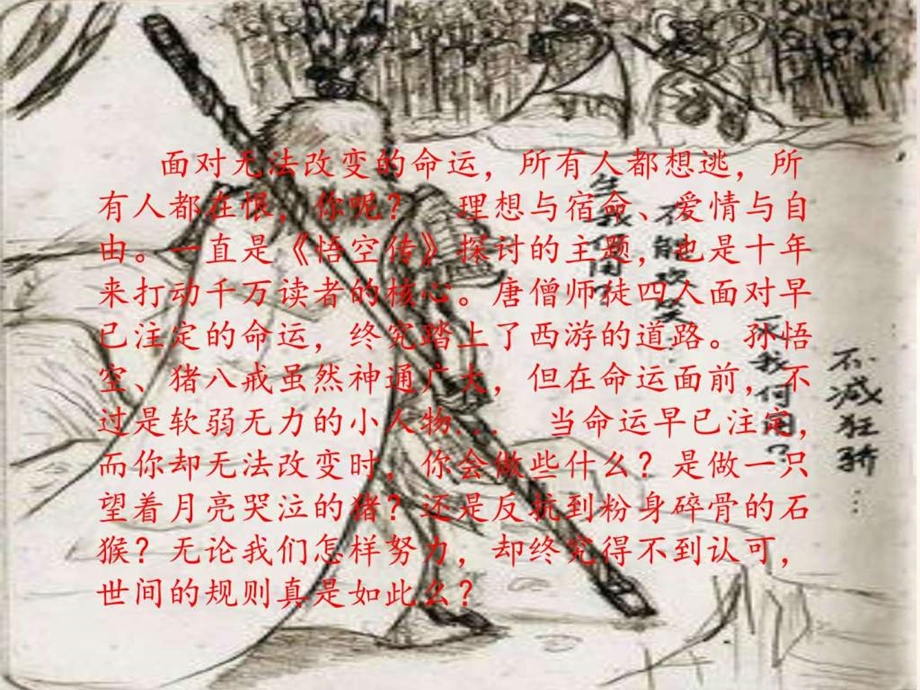 面对无法改变的命运，所有人都想逃，所
有人都在恨，你呢？ 理想与宿命、爱情与自
由。一直是《悟空传》探讨的主题，也是十年
来打动千万读者的核心。唐僧师徒四人面对早
已注定的命运，终究踏上了西游的道路。孙悟
空、猪八戒虽然神通广大，但在命运面前，不
过是软弱无力的小人物．． 当命运早已注定，
而你却无法改变时，你会做些什么？是做一只
望着月亮哭泣的猪？还是反抗到粉身碎骨的石
猴？无论我们怎样努力，却终究得不到认可，
世间的规则真是如此么？
生我何用？
不能欢笑…
灭我何用？
不减狂骄…